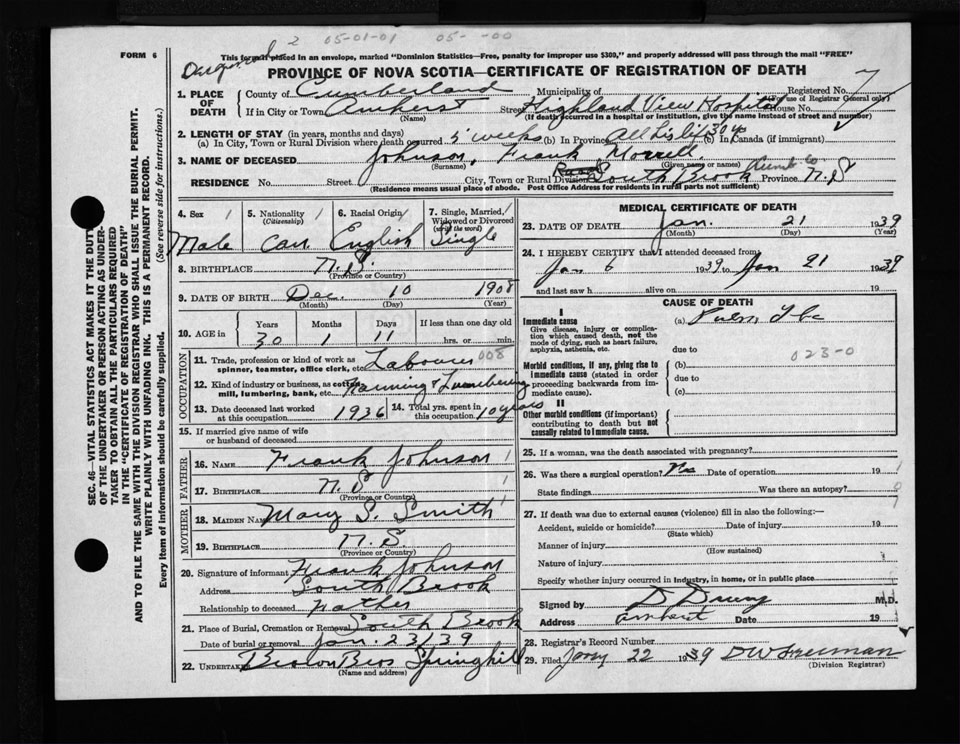 05-01-01 05- -00
FORM 6
This form if placed in an envelope, marked "Dominion Statistics—Free, penalty for improper use $300," and properly addressed will pass through the mail "FREE"
PROVINCE OF NOVA SCOTIA—CERTIFICATE OF REGISTRATION OF DEATH
1. PLACE OF DEATH
County of Cumberland Municipality of Registered No.
(For use of Registrar General only)
If in City or Town Amherst Street Highland View Hospital House No.
(Name) (If death occurred in a hospital or institution, give the name instead of street and number)
2. LENGTH OF STAY (in years, months and days)
(a) In City, Town or Rural Division where death occurred 5 weeks (b) In Province All his life 30 yrs (c) in Canada (if immigrant)
3. NAME OF DECEASED Johnson, Frank Morrell
(Surname) (Given name or names)
RESIDENCE No. Street City, Town or Rural Division South Brook Cumb Co Province N.S
(Residence means usual place of abode. Post Office Address for residents in rural parts not sufficient)
4. Sex Male
5. Nationality (Citizenship) Can
6. Racial Origin English
7. Single, Married, Widowed or Divorced (write the word) Single
8. BIRTHPLACE N.S.
(Province or Country)
9. DATE OF BIRTH Dec. 10 1908
(Month) (Day) (Year)
10. AGE in Years Months Days If less than one day old
30 1 11 hrs. or min.
OCCUPATION
11. Trade, profession or kind of work as spinner, teamster, office clerk, etc. Labourer 008
12. Kind of industry or business, as cotton mill, lumbering, bank, etc. Farming & Lumbering
13. Date deceased last worked at this occupation 1936
14. Total yrs. spent in this occupation 10 years
15. If married give name of wife or husband of deceased
FATHER
16. NAME Frank Johnson
17. BIRTHPLACE N.S
(Province or Country)
MOTHER
18. MAIDEN NAME Mary S. Smith
19. BIRTHPLACE N.S.
(Province or Country)
20. Signature of informant Frank Johnson
Address South Brook
Relationship to deceased Father
21. Place of Burial, Cremation or Removal South Brook
Date of burial or removal Jan. 23/39
22. UNDERTAKER Bros Springhill
(Name and address)
MEDICAL CERTIFICATE OF DEATH
23. DATE OF DEATH Jan. 21 1939
(Month) (Day) (Year)
24. I HEREBY CERTIFY that I attended deceased from
Jan 6 1939 to Jan 21 1939
and last saw h alive on 19
CAUSE OF DEATH
I
Immediate cause (a) Pulm Tbc
Give disease, injury or complication which caused death, not the mode of dying, such as heart failure, asphyxia, asthenia, etc.
due to
023-0
Morbid conditions, if any, giving rise to immediate cause (stated in order proceeding backwards from immediate cause).
(b)
due to
(c)
II
Other morbid conditions (if important) contributing to death but not causally related to immediate cause.
25. If a woman, was the death associated with pregnancy?
26. Was there a surgical operation? No Date of operation 19
State findings Was there an autopsy?
27. If death was due to external causes (violence) fill in also the following:—
Accident, suicide or homicide? Date of injury 19
(State which)
Manner of injury
(How sustained)
Nature of injury
Specify whether injury occurred in industry, in home, or in public place
Signed by M.D.
Address Amherst Date 19
28. Registrar's Record Number
29. Filed Jany 22 1939 DW Freeman
(Division Registrar)
SEC. 46—VITAL STATISTICS ACT MAKES IT THE DUTY
OF THE UNDERTAKER OR PERSON ACTING AS UNDER-
TAKER TO OBTAIN ALL THE PARTICULARS REQUIRED
IN THE "CERTIFICATE OF REGISTRATION OF DEATH"
AND TO FILE THE SAME WITH THE DIVISION REGISTRAR WHO SHALL ISSUE THE BURIAL PERMIT.
WRITE PLAINLY WITH UNFADING INK. THIS IS A PERMANENT RECORD.
Every item of information should be carefully supplied. (See reverse side for instructions.)